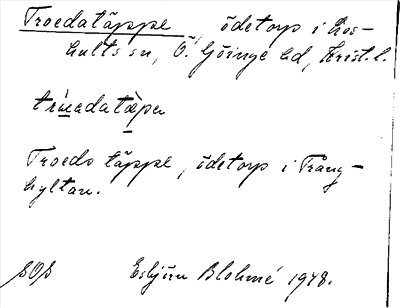 Troedatäppe, ödetorp i Los-
hults sn, Ö. Göinge hd, Krist. l.
trúedatæpa
Troeda täppe, ödetorp i Trång-
hyltan.
SOS Esbjörn Blohmé 1948.